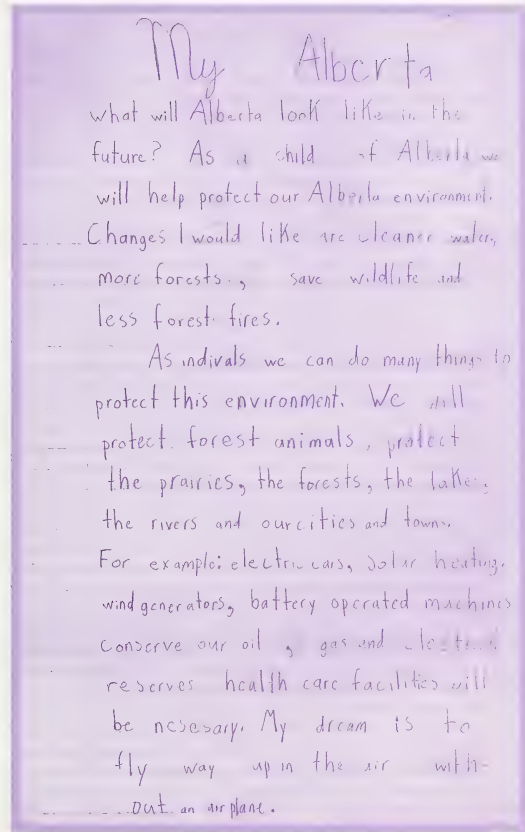 My Alberta
what will Alberta look like in the
future? As a child of Alberta we
will help protect our Alberta environment.
Changes I would like are cleaner water,
more forests, save wildlife and
less forest fires.
As indivals we can do many things to
protect this environment. We will
protect forest animals, protect
the prairies, the forests, the lakes,
the rivers and our cities and towns.
For example: electric cars, solar heating,
wind generators, battery operated machines
conserve our oil, gas and
reserves health care facilities will
be nesesary. My dream is to
fly way up in the air with-
out an airplane.